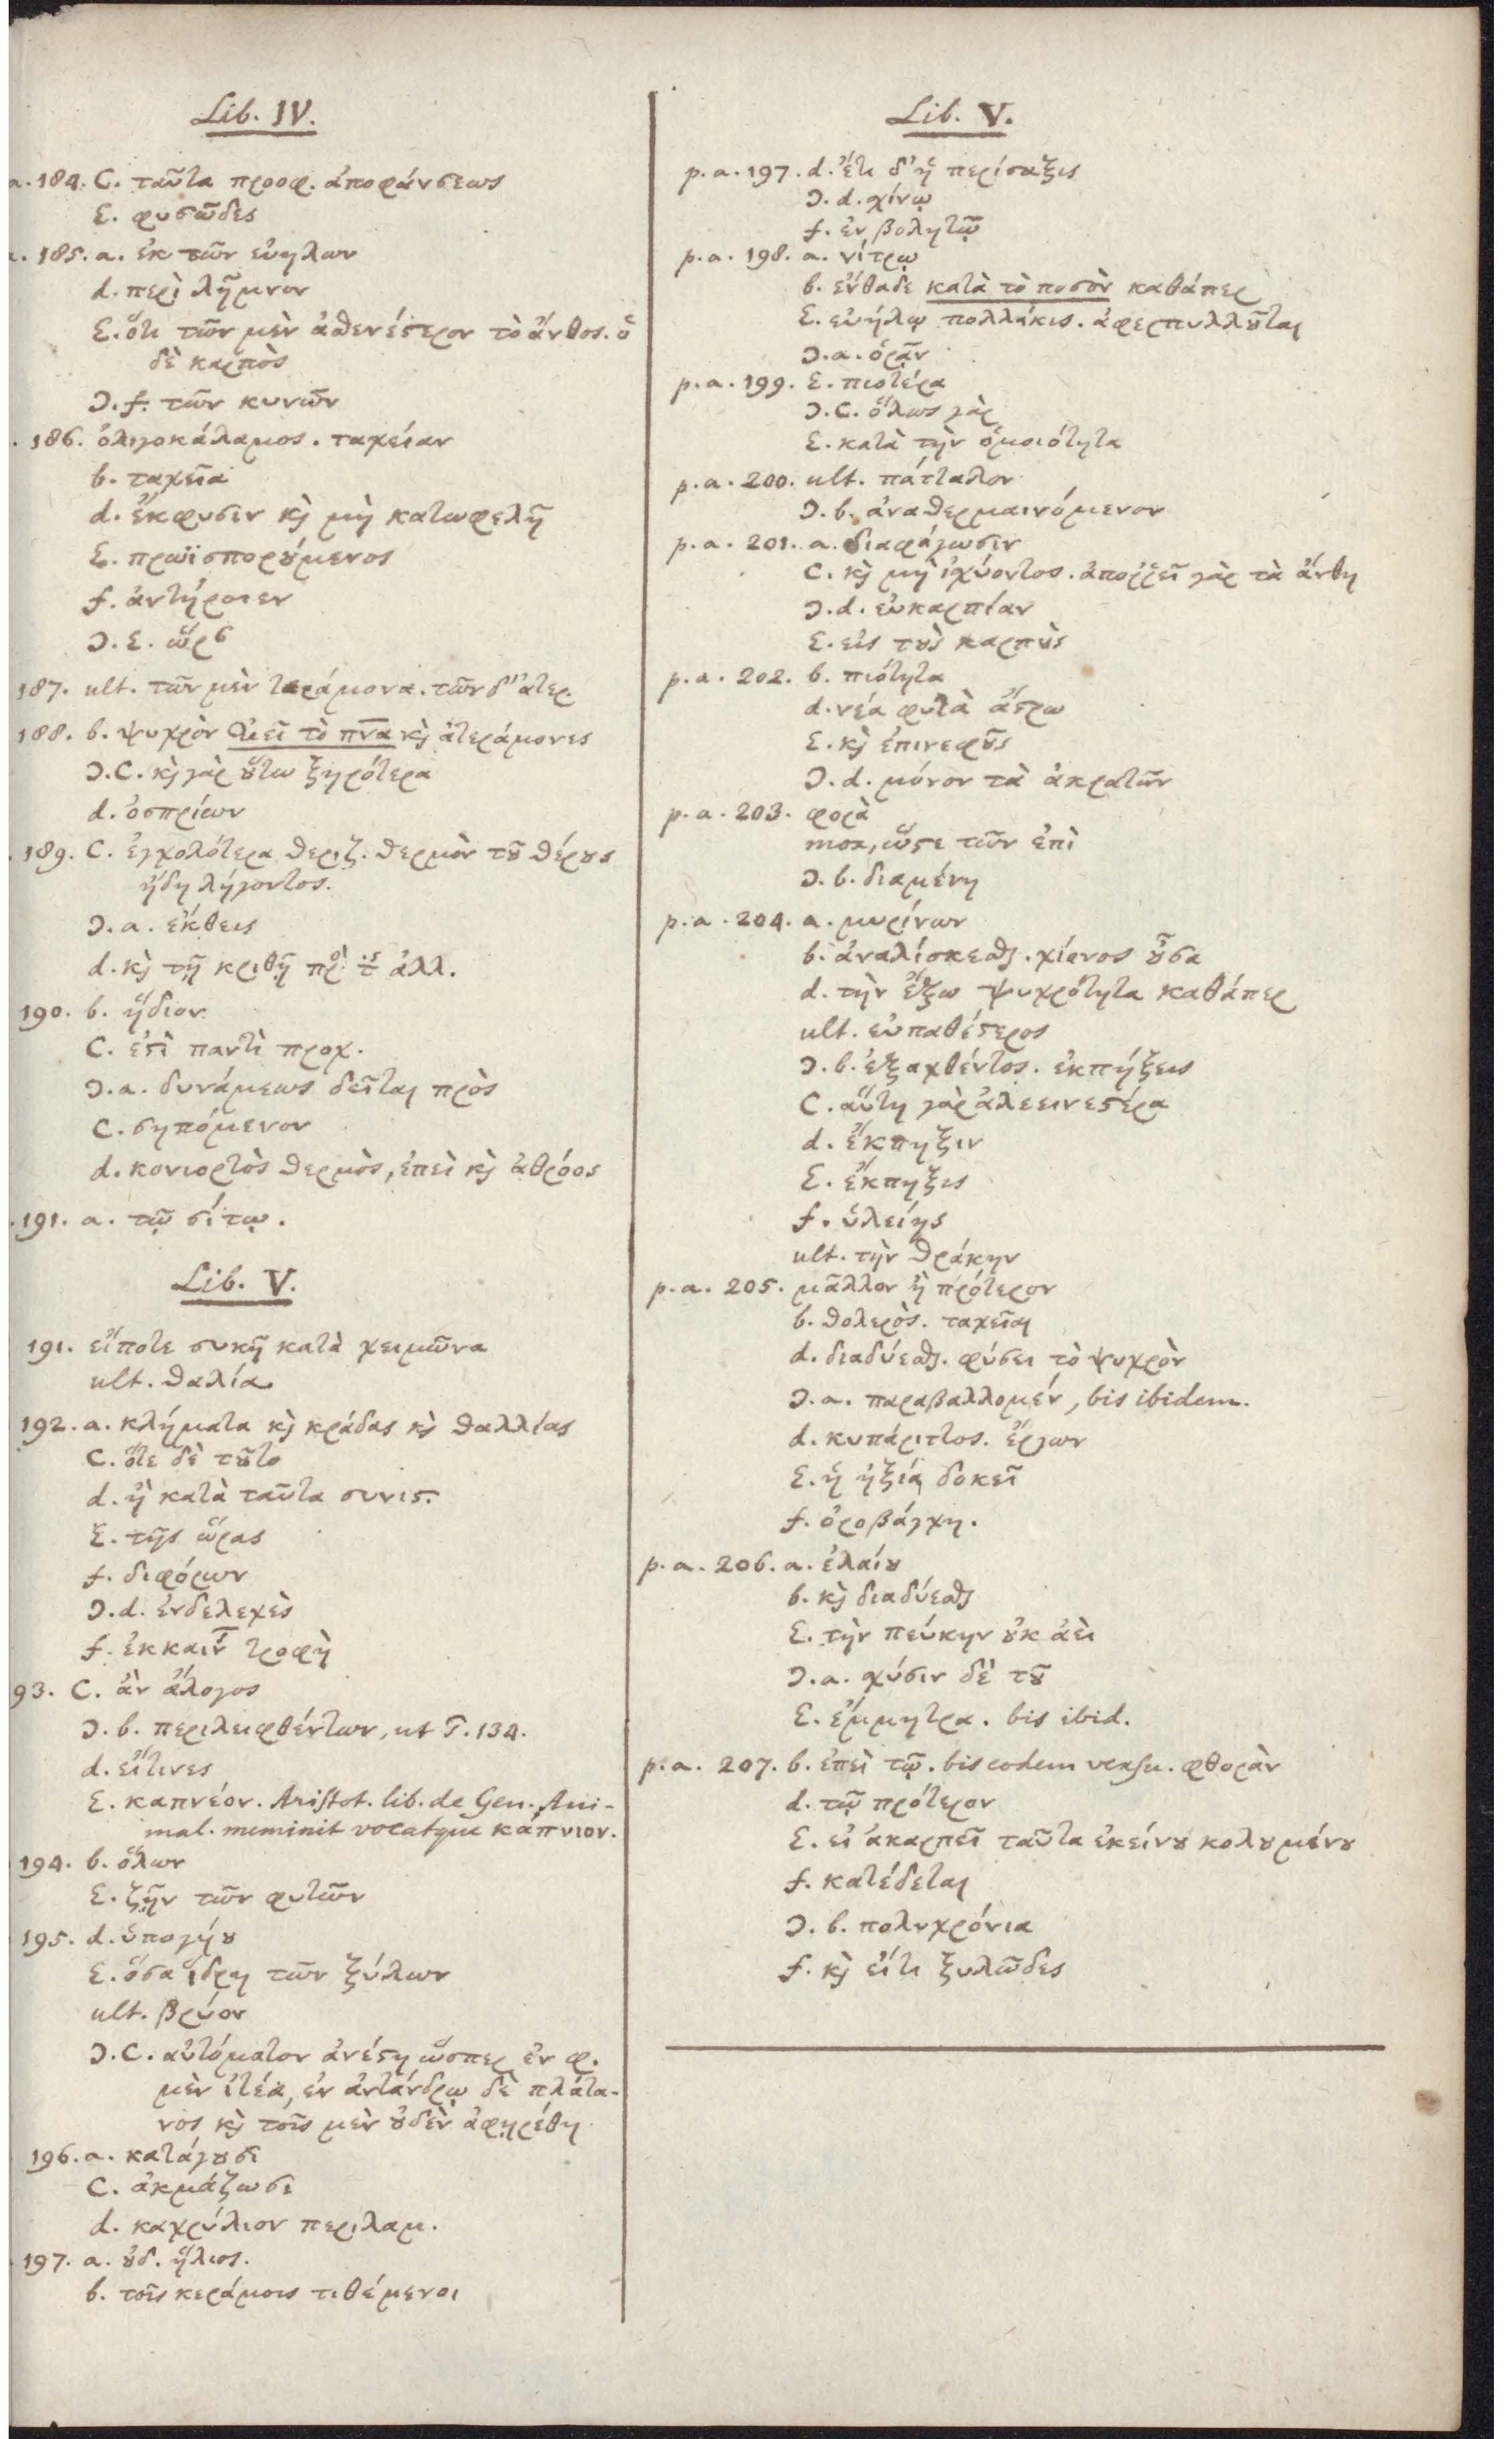 Lib. IV.
a. 184. C. ταῦτα προσφ. ἀποφάνσεως
Ɛ. φυσῶδες
185. a. ἐκ τῶν εὐηλων
d. περὶ λῆμνον
Ɛ. ὅτι τῶν μὲν ἀσθενέστερον τὸ ἄνθος. ὁ
δὲ καρπὸς
Ɔ. f. τῶν κυνῶν
. 186. ὀλιγοκάλαμος. ταχείαν
b. ταχεῖα
d. ἔκφυσεν κ̀ μὴ κατωφελῆ
Ɛ. πρωϊσπορούμενος
f. ἀντήροιεν
Ɔ. Ɛ. ὥρ
187. ult. τῶν μὲν τεράμονα. τῶν δ' ἀτερ.
188. b. ψυχρὸν ἀεὶ τὸ πν̅α κ̀ ἀτεράμονες
Ɔ. C. κ̀ γὰρ οὕτω ξηρότερα
d. ὀσπρίων
. 189. C. ἐγχολότερα θεριζ. θερμὸν τοῦ θέρους
ἤδη λήγοντος.
Ɔ. a. ἔκθεις
d. κ̀ τῇ κριθῇ πρὸ τ ἀλλ.
190. b. ἥδιον
C. ἐπὶ παντὶ προχ.
Ɔ. a. δυνάμεως δεῖται πρὸς
C. σηπόμενον
d. κονιορτὸς θερμὸς, ἐπεὶ κ̀ ἀθρόος
. 191. a. τῷ σίτῳ.
Lib. V.
191. εἴποτε συκῆ κατὰ χειμῶνα
ult. θαλία
192. a. κλήματα κ̀ κράδας κ̀ θαλλίας
C. ὅτε δὲ τοῦτο
d. ἢ κατὰ ταῦτα συνισ.
Ɛ. τῆς ὥρας
f. διφόρων
Ɔ. d. ἐνδελεχὲς
f. ἐκκαιν τροφὴ
93. C. ἂν ἄλογος
Ɔ. b. περιλειφθέντων, ut T. 134.
d. εἴτινες
Ɛ. καπνέον. Aristot. lib. de Gen. Ani-
mal. meminit vocatque κάπνιον.
194. b. ὅλων
Ɛ. ζῆν τῶν φυτῶν
195. d. ὑπογήου
Ɛ. ὅσα ἰδρη τῶν ξύλων
ult. βρύον
Ɔ. C. αὐτόματον ἀνέστη ὥσπερ ἐν φ.
μὲν ἰτέα, ἐν ἀντάνδρῳ δὲ πλάτα-
νος κ̀ τοῖς μὲν οὐδὲν ἀφῃρέθη
196. a. κατάγουσι
C. ἀκμάζωσι
d. καχρύλιον περιλαμ.
197. a. οὐδ. ἥλιος.
b. τοῖς κεράμοις τιθέμενοι
Lib. V.
p. a. 197. d. ἔτι δ' ἡ περίσαξις
Ɔ. d. χίνῳ
f. ἐν βολητῷ
p. a. 198. a. νίτρῳ
b. ἔνθαδε κατὰ τὸ ποσὸν καθάπερ
Ɛ. εὐήλῳ πολλάκις. ἀφερπυλλοῦται
Ɔ. a. ὁρᾷν
p. a. 199. Ɛ. πιοτέρα
Ɔ. C. ὅλως γὰρ
Ɛ. κατὰ τὴν ὁμοιότητα
p. a. 200. ult. πάτταλον
Ɔ. b. ἀναθερμαινόμενον
p. a. 201. a. διαφάγωσιν
C. κ̀ μὴ ἰχύοντος. ἀποῤῥεῖ γὰρ τὰ ἄνθη
Ɔ. d. εὐκαρπίαν
Ɛ. εἰς τοὺς καρποὺς
p. a. 202. b. πιότητα
d. νέα φυτὰ ἄστρω
Ɛ. κ̀ ἐπινεφοῦς
Ɔ. d. μόνον τὰ ἀκρατῶν
p. a. 203. φορὰ
mox, ὥστε τῶν ἐπὶ
Ɔ. b. διαμένη
p. a. 204. a. μυρίνων
b. ἀναλίσκεσθαι. χίανος οὖσα
d. τὴν ἔξω ψυχρότητα καθάπερ
ult. εὐπαθέστερος
Ɔ. b. ἐξαχθέντος. ἐκπήξεις
C. αὕτη γὰρ ἀλεεινεστέρα
d. ἔκπηξιν
Ɛ. ἔκπηξις
f. ὑλείης
ult. τὴν θράκην
p. a. 205. μᾶλλον ἢ πρότερον
b. θολερὸς. ταχεῖαι
d. διαδύεσθαι. φύσει τὸ ψυχρὸν
Ɔ. a. παραβαλλομέν, bis ibidem.
d. κυπάριττος. ἔργων
Ɛ. ἡ ἠξία δοκεῖ
f. ὀροβάγχη.
p. a. 206. a. ἐλαίου
b. κ̀ διαδύεσθαι
Ɛ. τὴν πεύκην οὐκ ἀεὶ
Ɔ. a. χύσιν δὲ τοῦ
Ɛ. ἔμμητρα. bis ibid.
p. a. 207. b. ἐπεὶ τῷ. bis eodem versu. φθορὰν
d. τῷ πρότερον
Ɛ. εἰ ἀκαρπεῖ ταῦτα ἐκείνου κολουμένου
f. κατέδεται
Ɔ. b. πολυχρόνια
f. κ̀ εἴτι ξυλῶδες